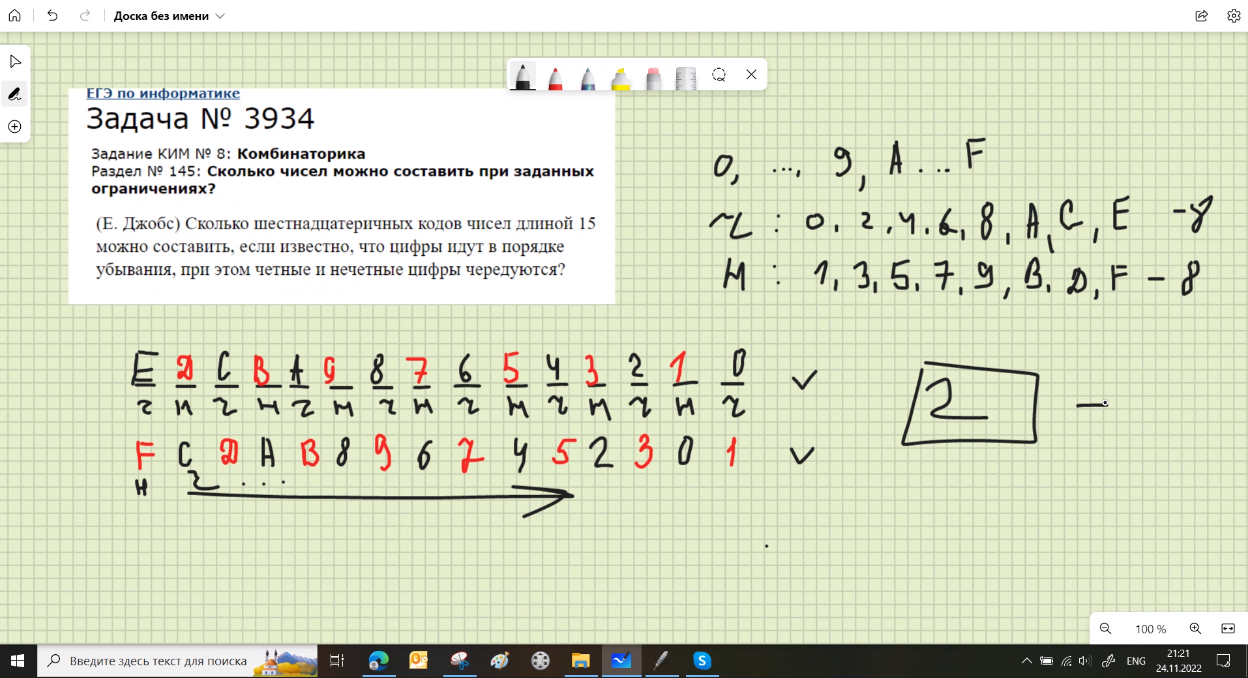 Доска без имени
ЕГЭ по информатике
Задача № 3934
Задание КИМ № 8: Комбинаторика
Раздел № 145: Сколько чисел можно составить при заданных
ограничениях?
(Е. Джобс) Сколько шестнадцатеричных кодов чисел длиной 15
можно составить, если известно, что цифры идут в порядке
убывания, при этом четные и нечетные цифры чередуются?
0, ..., 9, A ... F
ч : 0, 2, 4, 6, 8, A, C, E - 8
Н : 1, 3, 5, 7, 9, B, D, F - 8
E D C B A 9 8 7 6 5 4 3 2 1 0 ✓
ч н ч н ч н ч н ч н ч н ч н ч
2 —
F C D A B 8 9 6 7 4 5 2 3 0 1 ✓
н ч ...
100 %
Введите здесь текст для поиска
ENG
21:21
24.11.2022